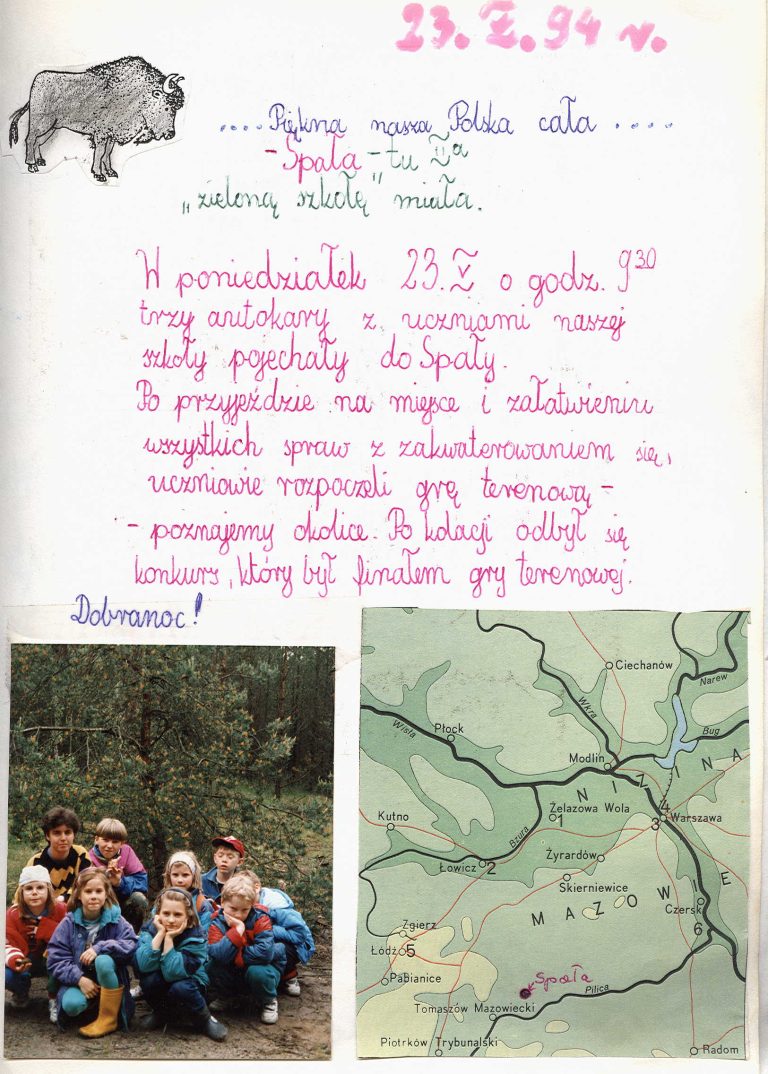 23.V.94 r.
....Piękna nasza Polska cała ....
- Spała - tu IIa
„zieloną szkołę" miała.
W poniedziałek 23.V o godz. 9³⁰
trzy autokary z uczniami naszej
szkoły pojechały do Spały.
Po przyjeździe na miejsce i załatwieniu
wszystkich spraw z zakwaterowaniem się,
uczniowie rozpoczeli grę terenową -
- poznajemy okolice. Po kolacji odbył się
konkurs, który był finałem gry terenowej.
Dobranoc!
Ciechanów
Narew
Wkra
Wisła
Płock
Bug
Modlin
NIZINA
Żelazowa Wola
1
4
Kutno
Warszawa
3
Bzura
Łowicz 2
Żyrardów
Skierniewice
MAZOWIE
Czersk
6
Zgierz
Łódź 5
Pabianice
Spała
Pilica
Tomaszów Mazowiecki
Piotrków Trybunalski
Radom